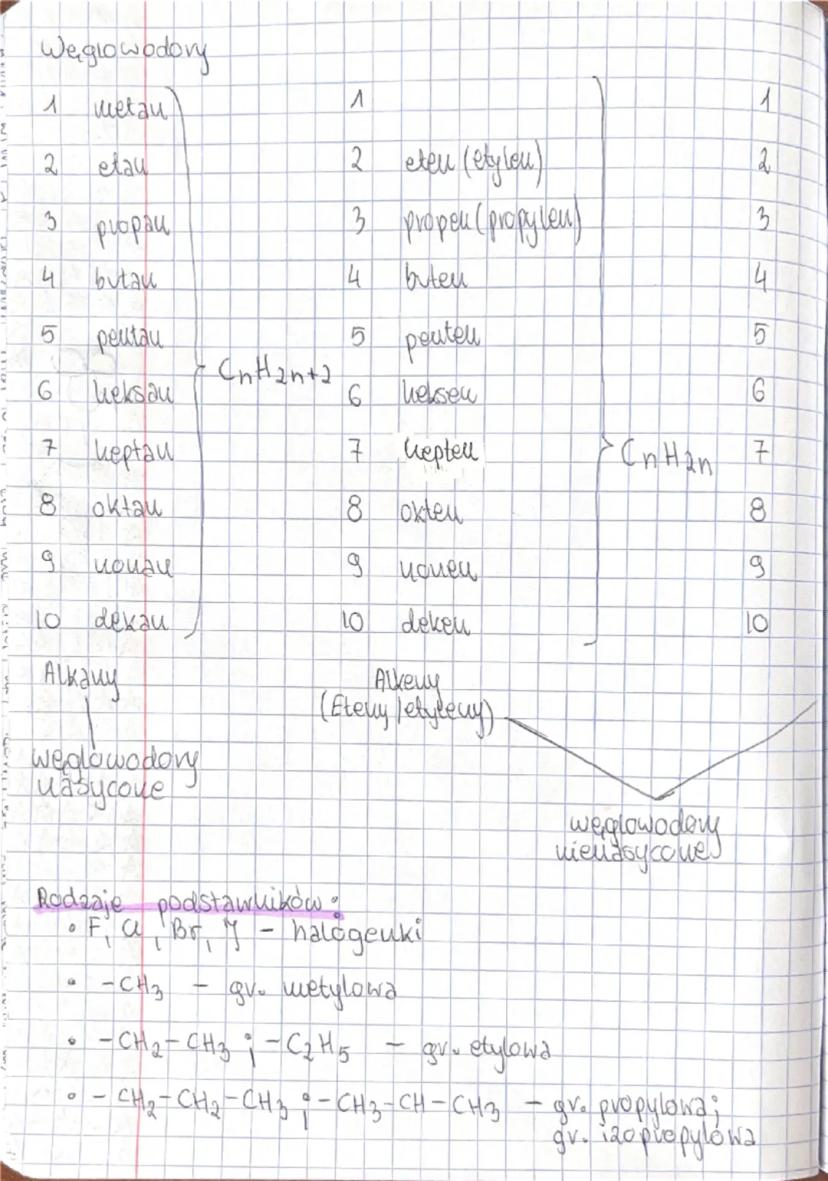 Węglowodory
1 metan 1 1
2 etan 2 eten (etylen) 2
3 propan 3 propen (propylen) 3
4 butan 4 buten 4
5 pentan 5 penten 5
CnH2n+2
6 heksan 6 heksen 6
7 heptan 7 hepten CnH2n 7
8 oktan 8 okten 8
9 nonan 9 nonen 9
10 dekan 10 deken 10
Alkany Alkeny
(Eteny/etyleny)
węglowodory
nasycone
węglowodory
nienasycone
Rodzaje podstawników:
• F, Cl, Br, J - halogenki
• -CH3 - gr. metylowa
• -CH2-CH3 ; -C2H5 - gr. etylowa
• -CH2-CH2-CH3 ; -CH3-CH-CH3 - gr. propylowa;
gr. izopropylowa